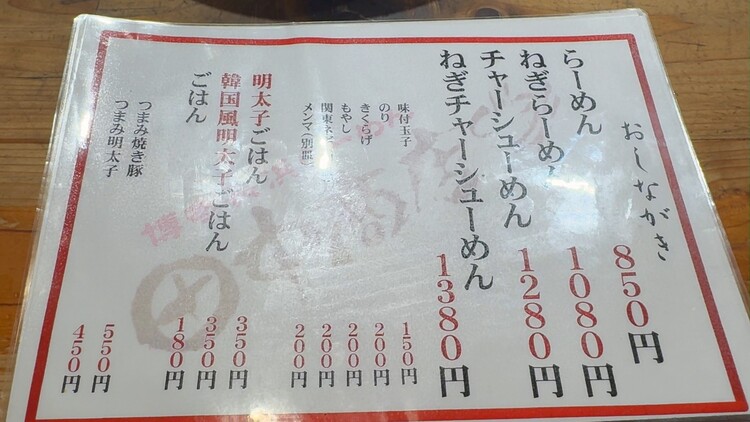 おしながき
らーめん 850円
ねぎらーめん 1080円
チャーシューめん 1280円
ねぎチャーシューめん 1380円
味付玉子 150円
のり 200円
きくらげ 200円
もやし 200円
関東ネギ 200円
メンマ(別皿) 200円
明太子ごはん 350円
韓国風明太子ごはん 350円
ごはん 180円
つまみ焼き豚 550円
つまみ明太子 450円